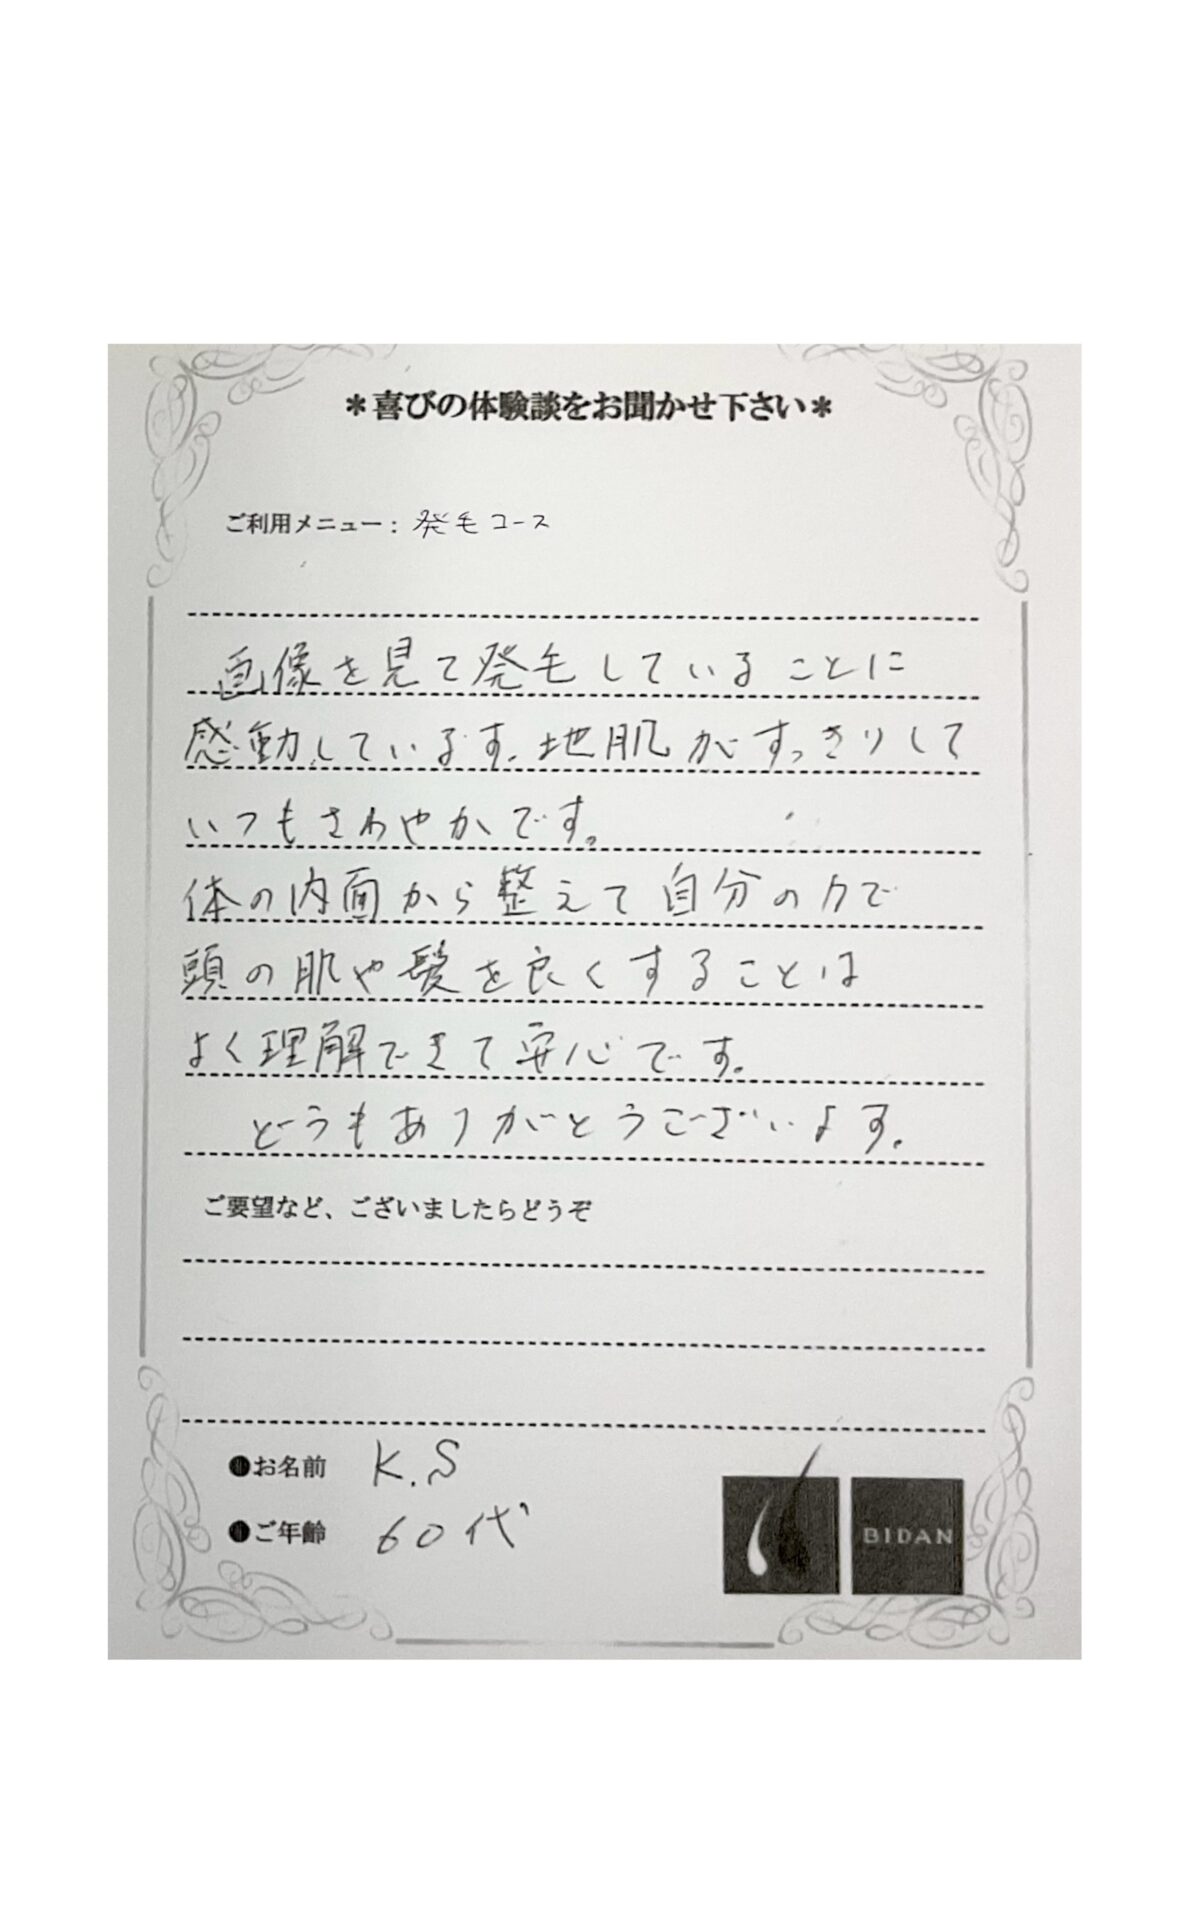 ＊喜びの体験談をお聞かせ下さい＊
ご利用メニュー：発毛コース
画像を見て発毛していることに
感動しています。地肌がすっきりして
いつもさわやかです。
体の内面から整えて自分の力で
頭の肌や髪を良くすることは
よく理解できて安心です。
どうもありがとうございます。
ご要望など、ございましたらどうぞ
●お名前 K.S
●ご年齢 60代
BIDAN